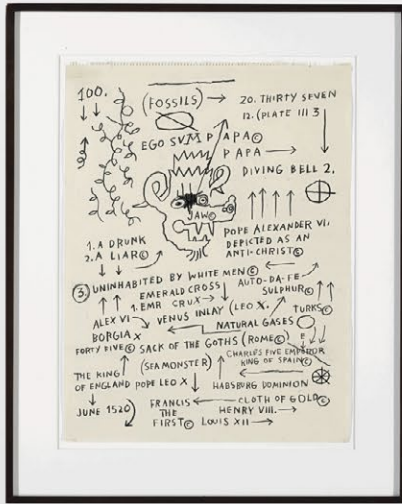 100.
(FOSSILS) → 20. THIRTY SEVEN
12. (PLATE III 3
EGO SUM PAPA©
PAPA →
DIVING BELL 2.
JAW©
POPE ALEXANDER VI,
DEPICTED AS AN
ANTI-CHRIST©
1. A DRUNK
2. A LIAR©
③ UNINHABITED BY WHITE MEN©
AUTO-DA-FE
EMERALD CROSS
SULPHUR©
1. EMR CRUX →
ALEX VI → VENUS INLAY (LEO X.
TURKS©
BORGIA X
NATURAL GASES
FORTY FIVE© SACK OF THE GOTHS (ROME©)
CHARLES FIVE EMPEROR
KING OF SPAIN©
THE KING
OF ENGLAND
(SEA MONSTER)
POPE LEO X
HABSBURG DOMINION
JUNE 1520)
FRANCIS
THE
FIRST©
← CLOTH OF GOLD©
HENRY VIII. →
LOUIS XII →